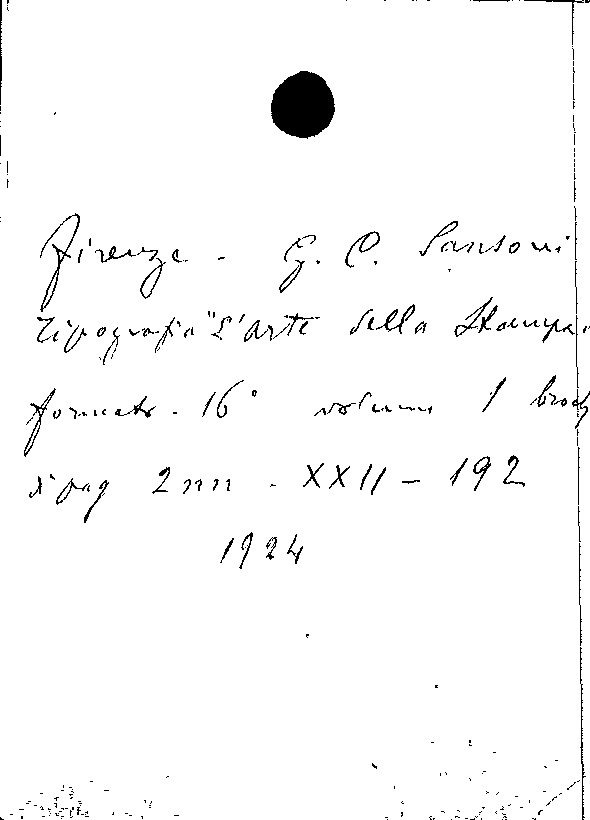 Firenze - G. C. Sansoni
Tipografia "L'arte della Stampa
formato - 16° volume 1 broch
di pag 2 nn - XXII - 192
1924